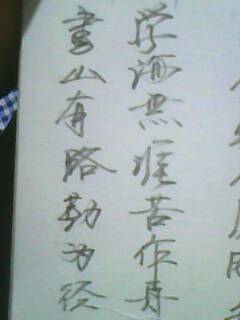 書山有路勤为径
学海無涯苦作舟